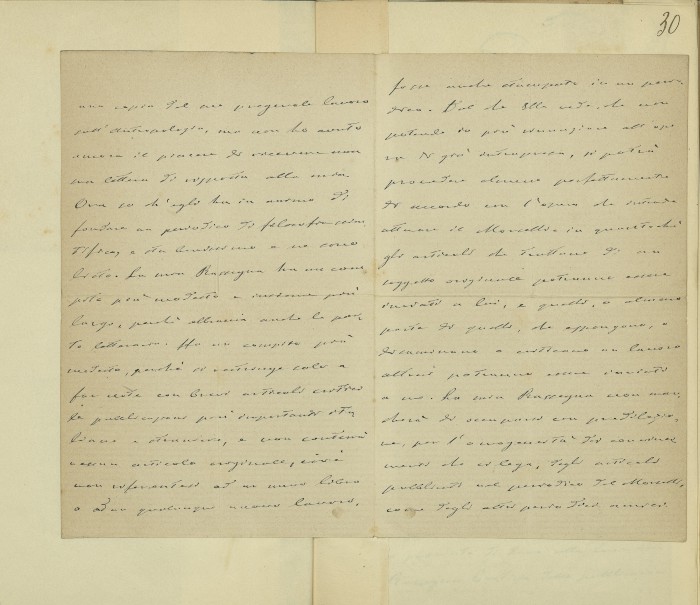 30
una copia del suo pregevole lavoro
sull'Antropologia, ma non ho avuto
ancora il piacere di riceverne
una lettera di risposta alla mia.
Ora so ch'egli ha in animo di
fondare un periodico di filosofia scien
tifica, e sta benissimo a me
La mia Rassegna ha un com
pito più modesto e insieme più
largo, perché abbraccia anche la par
te letteraria. Ha un compito più
modesto, perché si restringe solo a
far note con brevi articoli critici
le pubblicazioni più importanti ita
liane e straniere, e non conterrà
nessun articolo originale, cioè
non riferentesi ad un nuovo libro
o ad un qualunque nuovo lavoro,
fosse anche stampato in un perio
dico. Dal che Ella vede, che non
potendo io più rinunziare all'
già intrapresa, si potrà
procedere almeno perfettamente
di accordo con l'opera che intende
attuare il Morselli, in quantoché
gli articoli che trattano di un
soggetto originale potranno essere
inviati a lui, e quelli, o almeno
parte di quelli, che espongono, o
esaminano o criticano un lavoro
altrui potranno essere inviati
a me. La mia Rassegna non man
cherà di occuparsi con predilezio
ne, per l'omogeneità dei
che ci lega, degli articoli
pubblicati nel periodico del Morselli,
come degli altri periodici